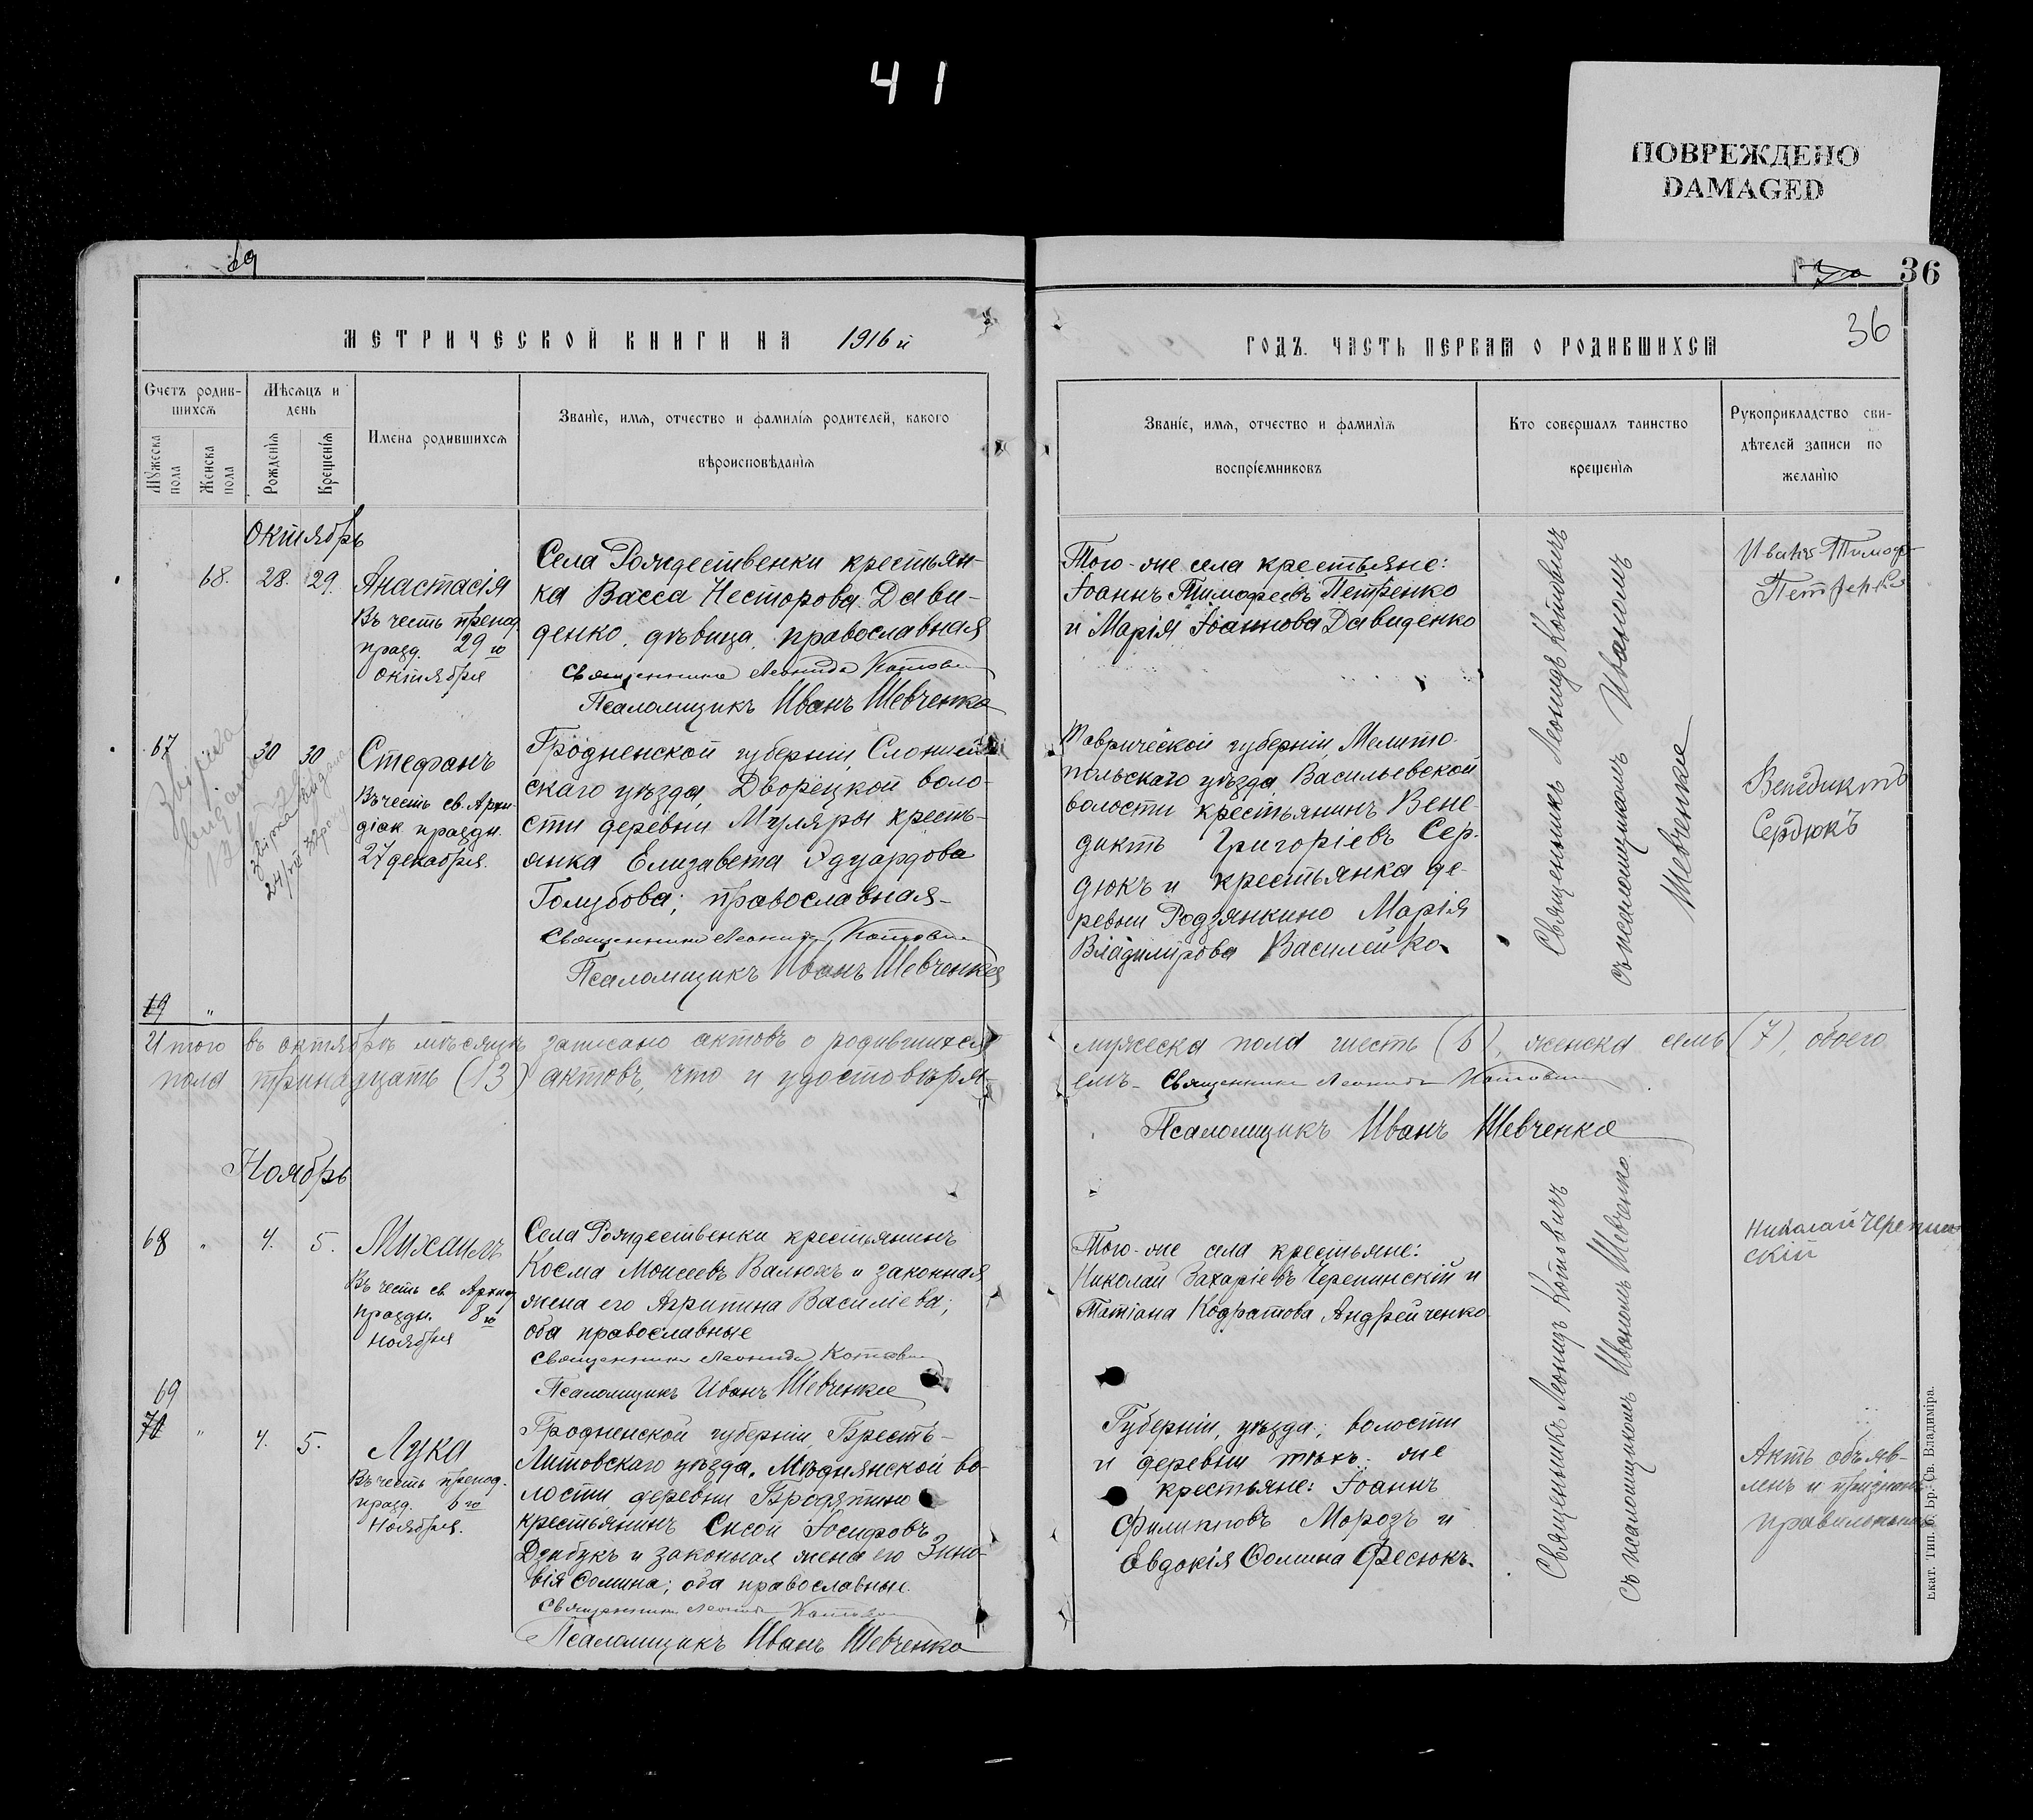 41
ПОВРЕЖДЕНО
DAMAGED
69
36
36
МЕТРИЧЕСКОЙ КНИГИ НА 1916й
ГОДЪ. ЧАСТЬ ПЕРВАЯ О РОДИВШИХСЯ
Счетъ родив-
шихся
Мужеска
пола
Женска
пола
Мѣсяцъ и
день
Рожденія
Крещенія
Имена родившихся
Званіе, имя, отчество и фамилія родителей, какого
вѣроисповѣданія
Званіе, имя, отчество и фамилія
воспріемниковъ
Кто совершалъ таинство
крещенія
Рукоприкладство сви-
дѣтелей записи по
желанію
Октябрь
68. 28. 29.
Анастасія
Въ честь препод
празд. 29го
октября
Села Рождественки крестьян-
ка Васса Несторова Дави-
денко, дѣвица, православная
Священникъ Леонидъ Котович
Псаломщикъ Иванъ Шевченко
Того-же села крестьяне:
Іоаннъ Тимофеевъ Петренко
и Марія Іоаннова Давиденко
Священникъ Леонидъ Котовичъ
съ псаломщикомъ Иваномъ
Шевченко
Иванъ Тимоф
Петренко
67 30 30
Стефанъ
Въ честь св. Архи-
діак праздн.
27 декабря.
Гродненской губерніи, Слоним
скаго уѣзда, Дворецкой воло-
сти деревни Муляры кресть-
янка Елизавета Эдуардова
Голубова; православная-
Священникъ Леонидъ Котович
Псаломщикъ Иванъ Шевченко
Таврической губерніи, Мелито-
польскаго уѣзда, Васильевской
волости крестьянинъ Вене-
диктъ Григоріевъ Сер-
дюкъ и крестьянка де-
ревни Родзянкино Марія
Владимірова Василейко
Венедиктъ
Сердюкъ
Итого въ октябрѣ мѣсяцѣ записано актовъ о родившихся мужеска пола шесть (6), женска семь (7), обоего
пола тринадцать (13) актовъ, что и удостовѣря- емъ- Священникъ Леонидъ Котович
Псаломщикъ Иванъ Шевченко
Ноябрь
68 " 4. 5.
Михаилъ
Въ честь св. Архис
праздн. 8го
ноября
Села Рождественки крестьянинъ
Косма Моисеевъ Валюхъ и законная
жена его Агрипина Василіева;
оба православные
Священникъ Леонидъ Котович
Псаломщикъ Иванъ Шевченко
Того-же села крестьяне:
Николай Захаріевъ Черепинскій и
Татіана Кодратова Андрейченко
Священникъ Леонидъ Котовичъ
съ псаломщикомъ Иваномъ Шевченко
Николай Черепин
скій
69
" 4. 5.
Лука
Въ честь препод.
празд. 6го
Ноября.
Гродненской губерніи, Брестъ-
Литовскаго уѣзда, Мѣднянской во-
лости деревни Бродятино
крестьянинъ Сисой Іосифовъ
Дзябукъ и законная жена его Зино-
вія Ѳомина; оба православные.
Священникъ Леонидъ Котович
Псаломщикъ Иванъ Шевченко
Губерніи, уѣзда; волости
и деревни тѣхъ же
крестьяне: Іоаннъ
Филипповъ Морозъ и
Евдокія Ѳомина Фесюкъ
Актъ объяв-
ленъ и признанъ
правильнымъ
Екат. Тип. Бр. Св. Владиміра.